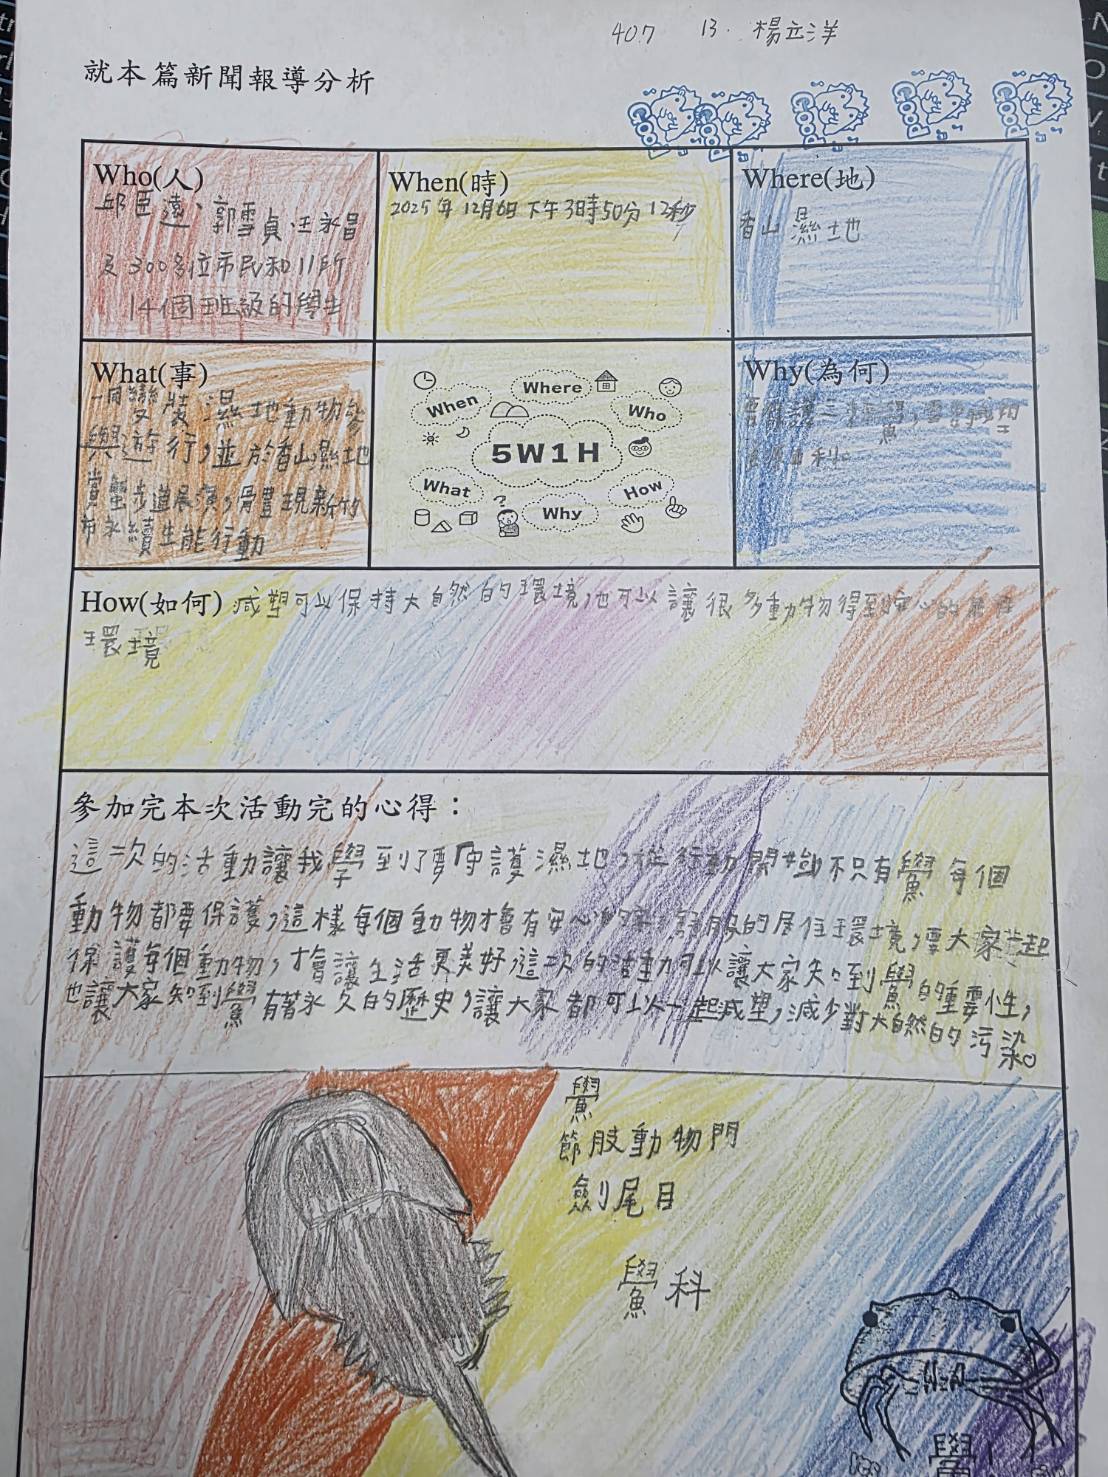 407 13. 楊立洋
就本篇新聞報導分析
GOOD GOOD GOOD GOOD GOOD
Who(人)
邱臣遠、郭雪貞、王永昌
及300多位市民和11所
14個班級的學生
When(時)
2025年12月6日下午3時50分12秒
Where(地)
香山濕地
What(事)
變裝濕地動物參
與遊行,並於香山濕地
賞蟹步道展演,體現新竹
市永續生能行動
When
Where
Who
5W1H
What
Why
How
Why(為何)
How(如何) 減塑可以保持大自然的環境,也可以讓很多動物得到安心的居住
環境
參加完本次活動完的心得:
這次的活動讓我學到了要守護濕地,從行動開始不只有鱟每個
動物都要保護,這樣每個動物才會有安心的舒服的居住環境,要大家一起
保護每個動物,才會讓生活更美好,這次的活動可以讓大家知到鱟的重要性,
也讓大家知到鱟有著永久的歷史,讓大家都可以一起減塑,減少對大自然的污染。
鱟
節肢動物門
劍尾目
鱟科